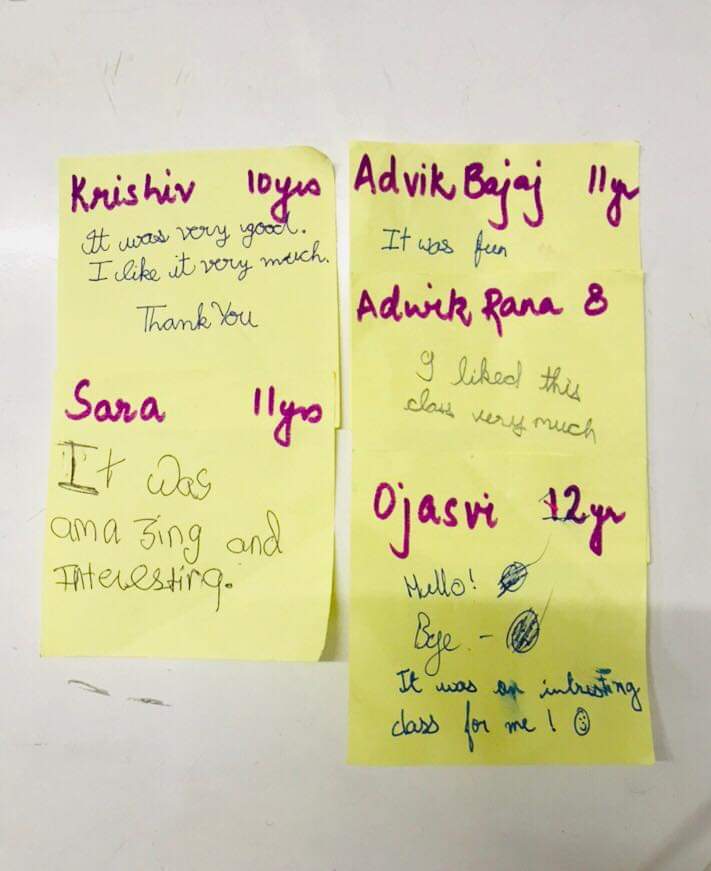 Krishiv 10yrs
It was very good.
I like it very much.
Thank You
Sara 11yrs
It was
amazing and
Interesting.
Advik Bajaj 11yr
It was fun
Adwik Rana 8
I liked this
class very much
Ojasvi 12yr
Hello!
Bye -
It was an intresting
class for me! ☺